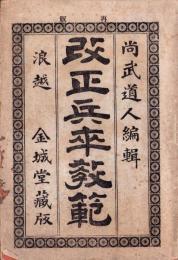 再版
尚武道人編輯
改正兵卒教範
浪越 金城堂藏版